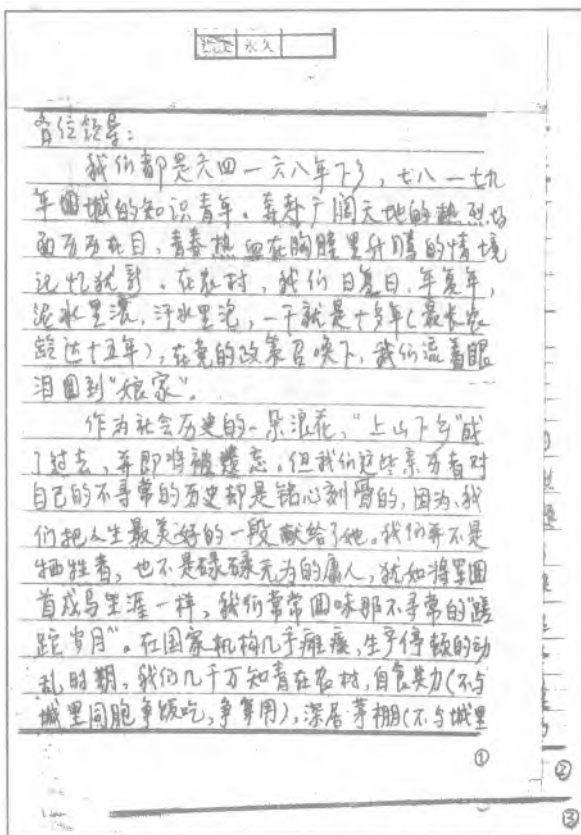 永久
各位领导：
我们都是六四一六八年下乡，七八一七九
年回城的知识青年。奔赴广阔天地的热烈场
面历历在目，青春热血在胸膛里升腾的情境
记忆犹新。在农村，我们日复日，年复年，
泥水里滚，汗水里泡，一干就是十多年（最长农
龄达十五年），在党的政策召唤下，我们流着眼
泪回到“娘家”。
作为社会历史的一朵浪花，“上山下乡”成
了过去，并即将被遗忘。但我们这些亲历者对
自己的不寻常的历史却是铭心刻骨的，因为，我
们把人生最美好的一段献给了她。我们并不是
牺牲者，也不是碌碌无为的庸人，犹如将军回
首戎马生涯一样，我们常常回味那不寻常的“蹉
跎岁月”。在国家机构几乎瘫痪，生产停顿的动
乱时期，我们几千万知青在农村，自食其力（不与
城里同胞争饭吃，争算用），深居茅棚（不与城里
①
②
③